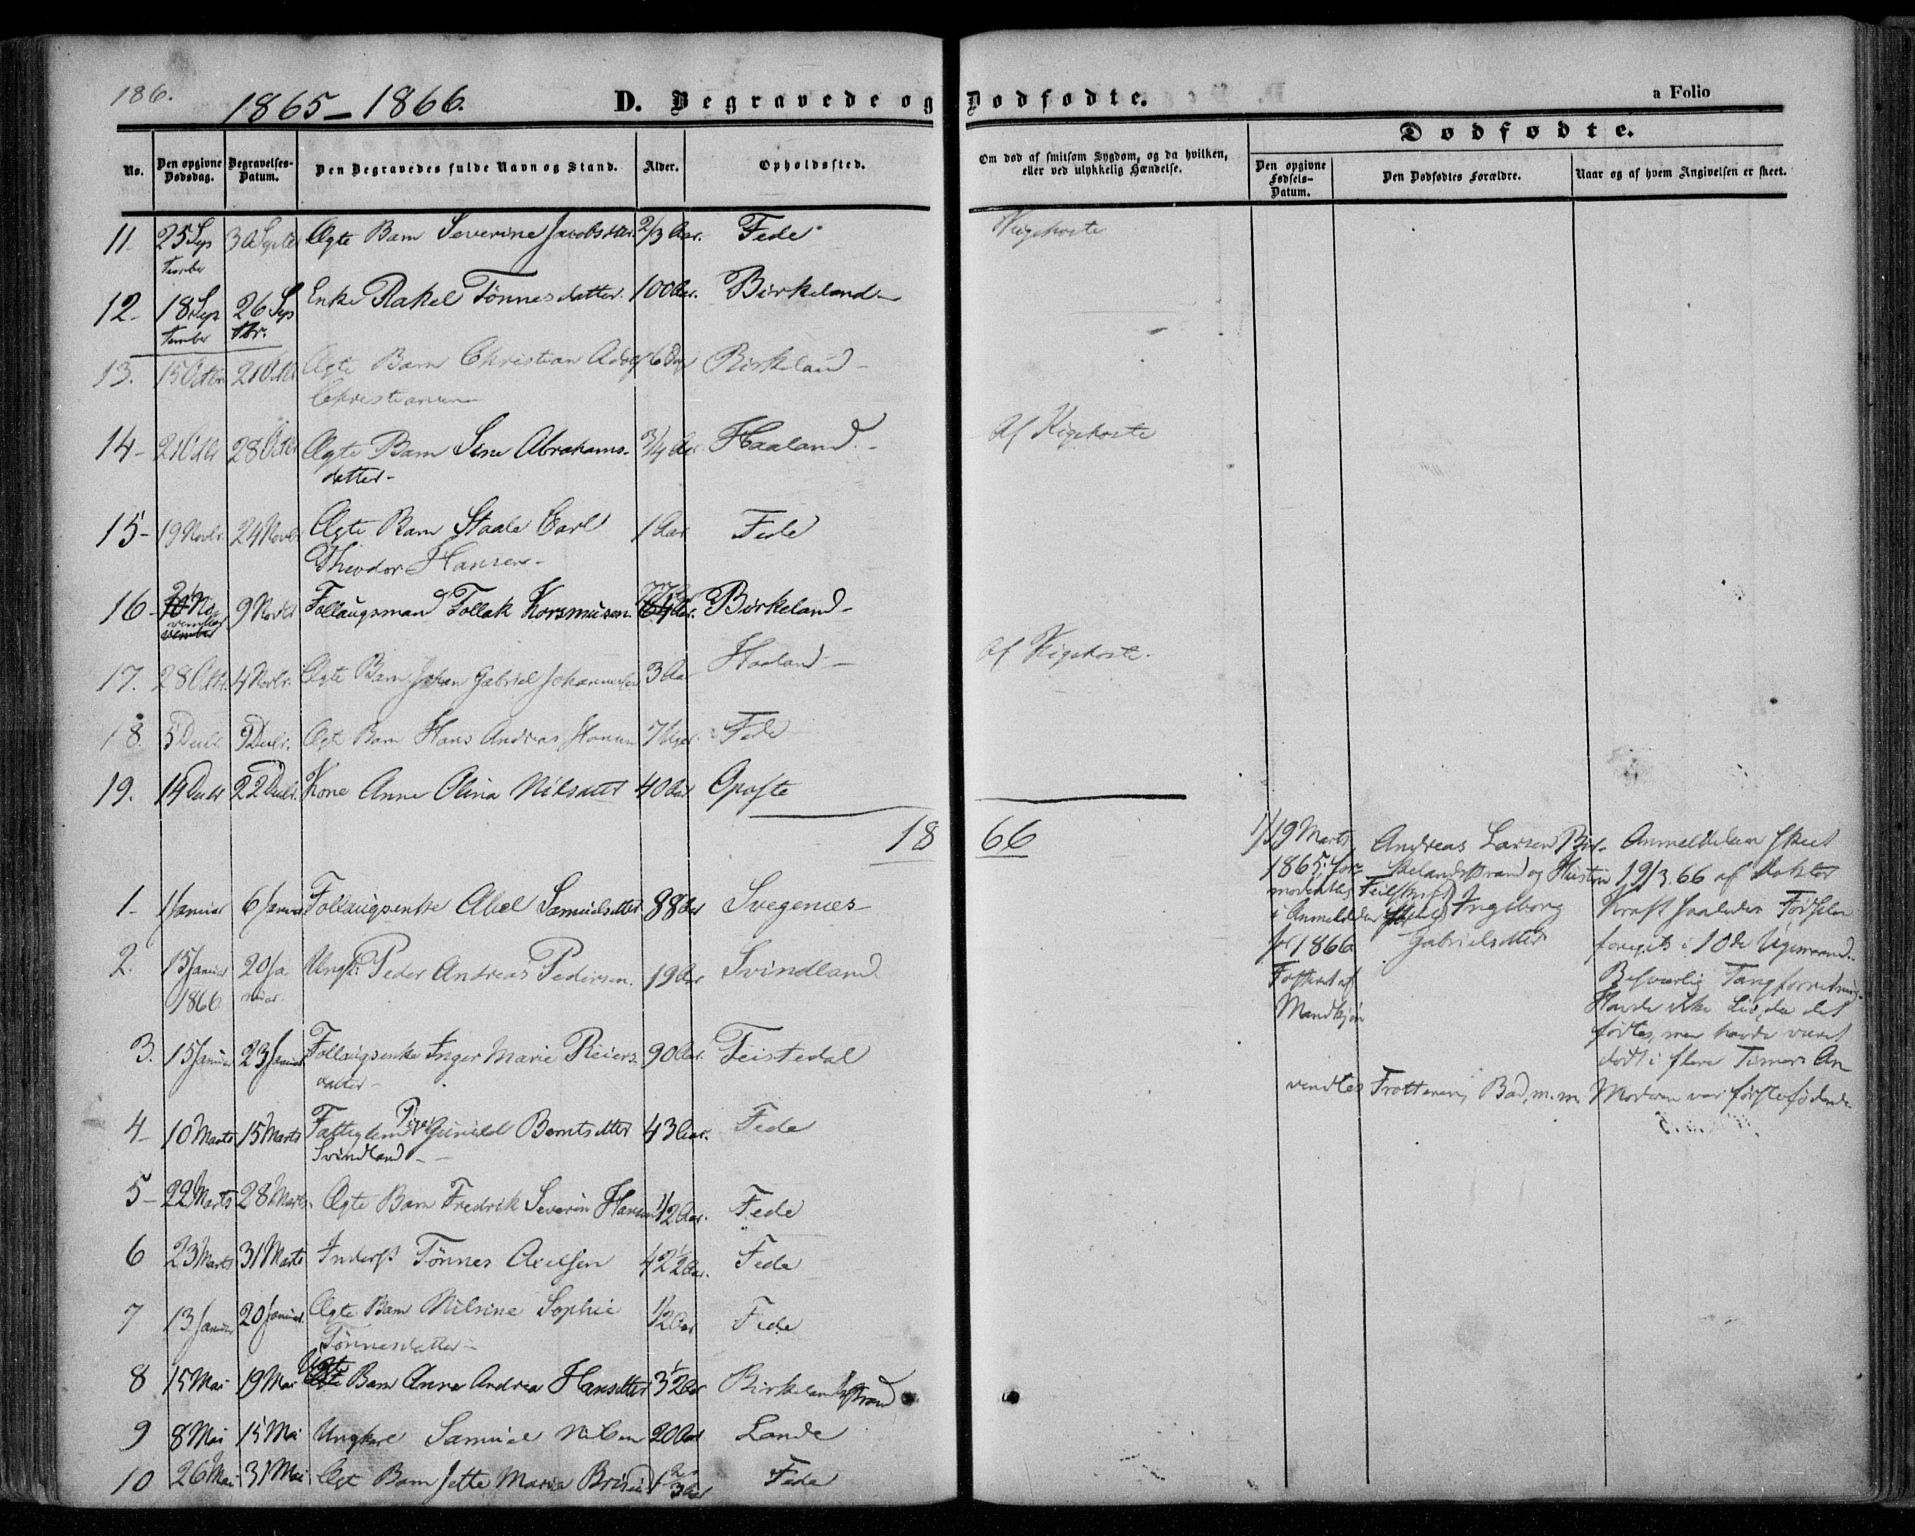 186.
1865-1866.
D. Begravede og Dødfødte.
a Folio
No.
Den opgivne Dødsdag.
Begravelses-Datum.
Den Begravedes fulde Navn og Stand.
Alder.
Opholdssted.
Om død af smitsom Sygdom, og da hvilken, eller ved ulykkelig Hændelse.
Dødfødte.
Den opgivne Fødsels-Datum.
Den Dødfødtes Forældre.
Naar og af hvem Angivelsen er skeet.
11. 25 September 30 Septbr Ægte Barn Severine Jacobsdtter. 2/3 Aar. Fede Kigehoste
12- 18 September 26 Septbr. Enke Rakel Tönnesdatter. 100 Aar. Birkeland-
13. 15 Octbr 21 Octbr Ægte Barn Christian Adolf 6 Birkeland-
Christiansen
14- 21 Octbr 28 Octbr Ægte Barn Sine Abrahams- 3/4 Aar Haaland.- Af Kigehoste
datter-
15- 19 Novbr. 24 Novbr Ægte Barn Staale Carl 1 Aar Fede
Theodor Hansen-
16- November 9 Novbr Follaugsmand Tollak Rasmusen. Aar. Birkeland-
17. 28 Octbr. 4 Novbr. Ægte Barn Johan Gabriel Johannesen 3 Aar Haaland- Af Kigehoste.
18. 5 Decbr. 9 Decbr. Ægte Barn Hans Andreas Hansen 7 Uger. Fede
19. 14 Decbr 22 Decbr. Kone Anne Olina Nilsdtter 40 Aar Opofte
18 66
1- 1 Januar 6 Januar Follaugsenke Abel Samuelsdtter 88 Aar Svegenæs-
2. 15 Januar 1866 20 Januar. Ungk. Peder Andreas Pedersen. 19 Aar Svindland
3. 15 Januar 23 Januar Follaugsenke Inger Marie Reiers- 90 Aar. Feistedal
datter-
4- 10 Marts 15 Marts Fattiglem Pige Gunild Berntsdtter 43 Aar. Fede
Svindland-
5- 22 Marts 28 Marts. Ægte Barn Fredrik Severin Hansen 1/2 Aar. Fede
6 23 Marts 31 Marts Inderst Tönnes Axelsen 42 1/2 Aar. Fede
7 13 Januar 20 Januar. Ægte Barn Nilsine Sophie 1/2 Aar Fede
Tönnesdatter-
8 15 Mai 19 Mai Uægte Barn Anna Andrea Hansdtter 3 1/2 Aar Birkelandsstrand
9 8 Mai 15 Mai Ungkarl Samuel Nilsen 20 Aar Lande
10 26 Mai 31 Mai Ægte Barn Jette Marie 1 2/3 Aar Fede
1, 19 Marts
1865, formodentlig Feilskrift
i Anmeldelsen
for 1866
Fosteret af
Mandkjøn
Andreas Larsen Birkelandsstrand og Hustru
Ingeborg
Gabrielsdtter
Anmeldelsen skeet
19/3 66 af Doktor
Kraft saaledes Fødselen
foregik i 10de Ugemaaned.
Besværlig Tangforretning.
Havde ikke Liv, da det
fødtes, men havde været
dødt i flere Timer. Anvendtes Frotteren, Bad, m. m. Moderen var førstefødende